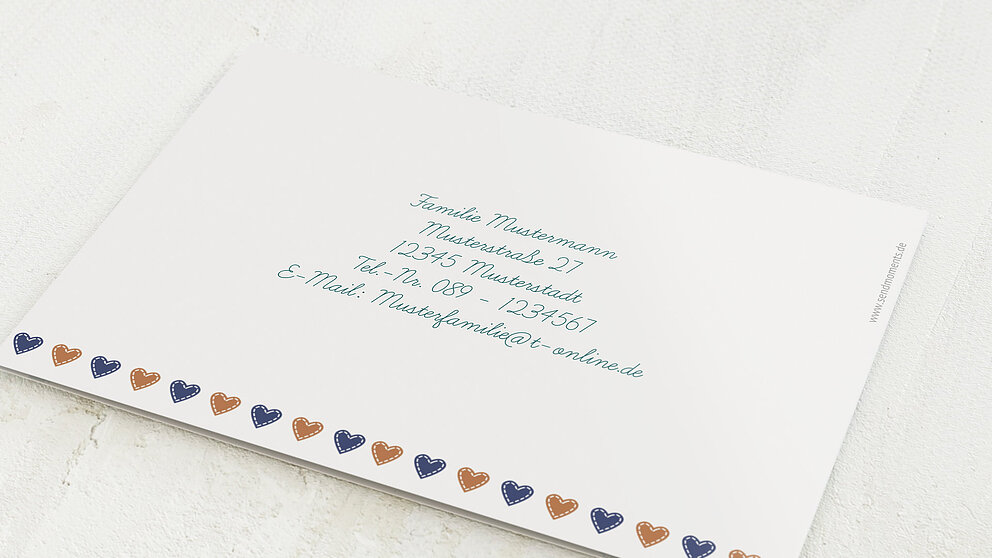 Familie Mustermann
Musterstraße 27
12345 Musterstadt
Tel.-Nr. 089 - 1234567
E-Mail: Musterfamilie@t-online.de
www.sendmoments.de